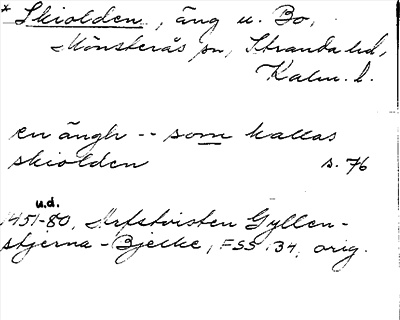 * Skiolden, äng u. Bo,
Mönsterås sn, Stranda hd,
Kalm. l.
en ängh -- som kallas
skiolden s. 76
u.d.
1451-80, Arfstvisten Gyllen-
stjerna - Bjelke, FSS. 34, orig.